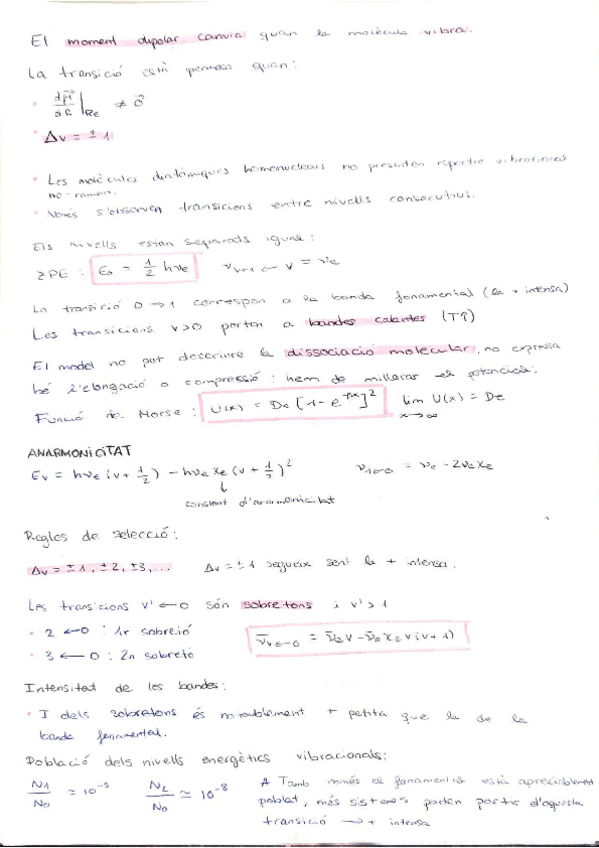 El moment dipolar canvia quan la molècula vibra.
La transició està permesa quan:
• dμ⃗/dR |Re ≠ 0⃗
• Δv = ± 1
• Les molècules diatòmiques homonuclears no presenten espectre vibracional
no-raman.
• Només s'observen transicions entre nivells consecutius.
Els nivells estan separats igual:
ZPE: E₀ = 1/2 hνe   νv+1←v = νe
La transició 0→1 correspon a la banda fonamental (la + intensa)
Les transicions v>0 porten a bandes calentes (T↑)
El model no pot descriure la dissociació molecular, no expressa
bé l'elongació o compressió: hem de millorar el potencial:
Funció de Morse: U(x) = De [1-e^-βx]²   lim x→∞ U(x) = De
ANARMONICITAT
Ev = hνe (v + 1/2) - hνe xe (v + 1/2)²   ν1←0 = νe - 2νexe
↓
constant d'anarmonicitat
Regles de selecció:
Δv = ±1, ±2, ±3, ...   Δv = ±1 segueix sent la + intensa.
Les transicions v' ← 0 són sobretons i v' > 1
• 2 ← 0 : 1r sobretó
• 3 ← 0 : 2n sobretó   ν̄v←0 = ν̄e v - ν̄e xe v (v+1)
Intensitat de les bandes:
• I dels sobretons és notablement + petita que la de la
banda fonamental.
Població dels nivells energètics vibracionals:
N1/N0 ≃ 10⁻⁵   N2/N0 ≃ 10⁻⁸   A Tamb només el fonamental està apreciablement
poblat, més sistemes poden partir d'aquesta
transició → + intensa